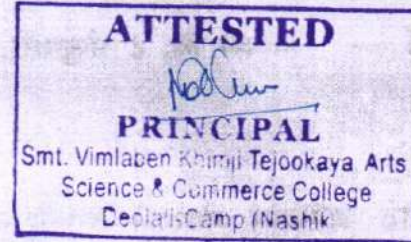 ATTESTED
PRINCIPAL
Smt. Vimlaben Khimji Tejookaya Arts
Science & Commerce College
Deolali Camp (Nashik